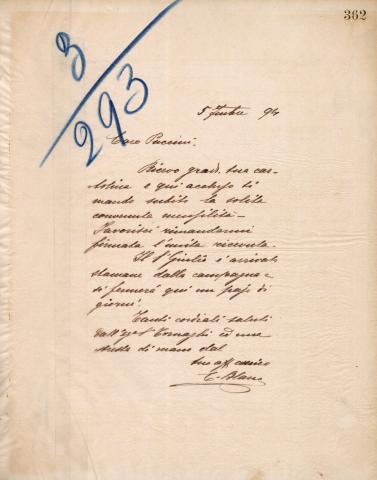 362
3/293
5 7mbre 94
Caro Puccini,
Ricevo grad. tua car-
tolina e qui accluso ti
mando subito la solita
convenuta mensilità -
Favorisci rimandarmi
firmata l'unita ricevuta.
Il Sr Giulio è arrivato
stamane dalla campagna e
si fermerà qui un pajo di
giorni.
Tanti cordiali saluti
dall' Sr Tornaghi ed una
stretta di mano dal
tuo aff amico
C. Blanc